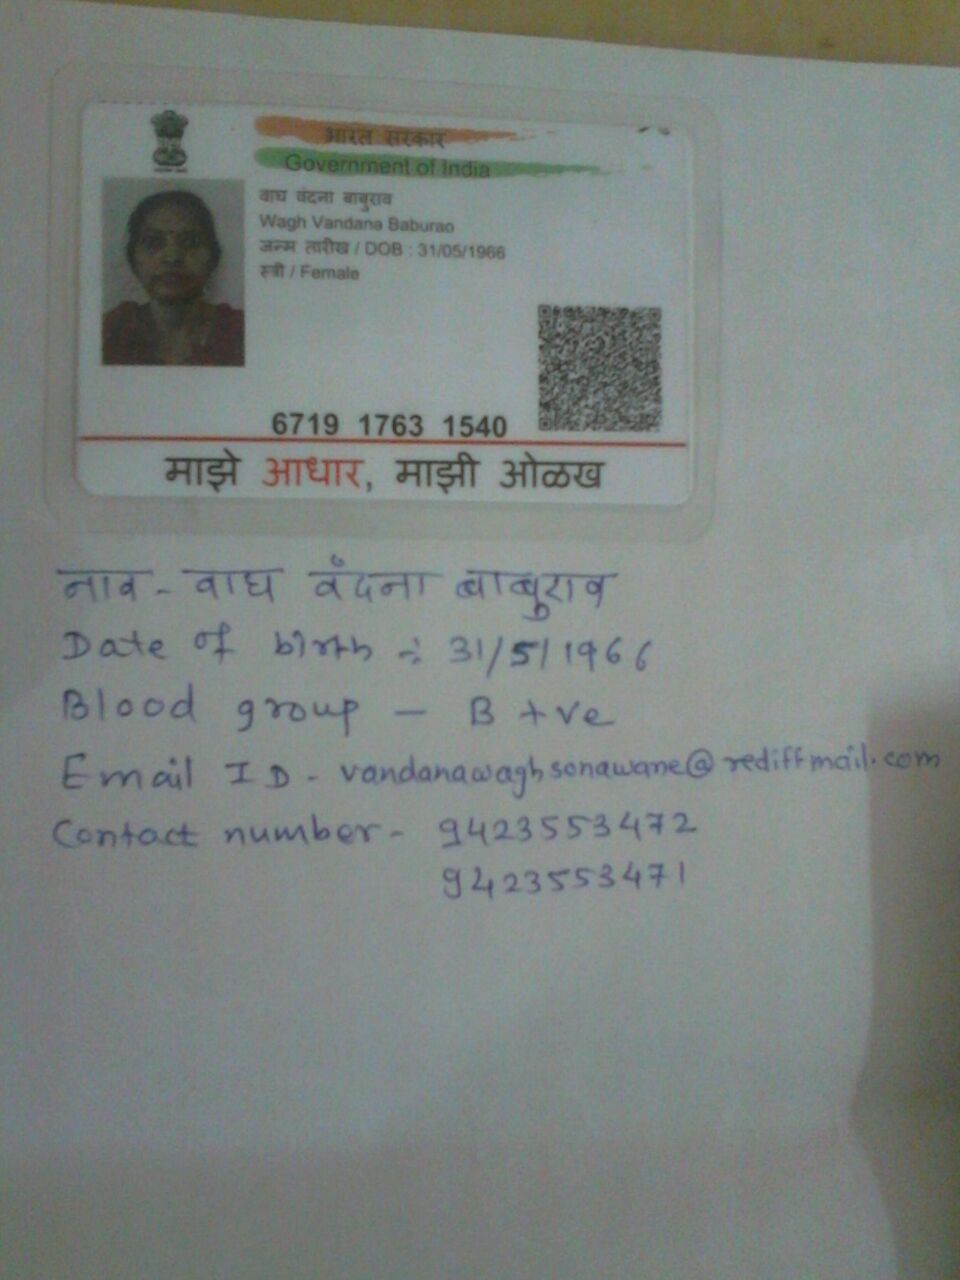 भारत सरकार
Government of India
वाघ वंदना बाबुराव
Wagh Vandana Baburao
जन्म तारीख / DOB : 31/05/1966
स्त्री / Female
6719 1763 1540
माझे आधार, माझी ओळख
नाव - वाघ वंदना बाबुराव
Date of birth :- 31/5/1966
Blood group - B +ve
Email ID - vandanawaghsonawane@rediffmail.com
Contact number - 9423553472
9423553471